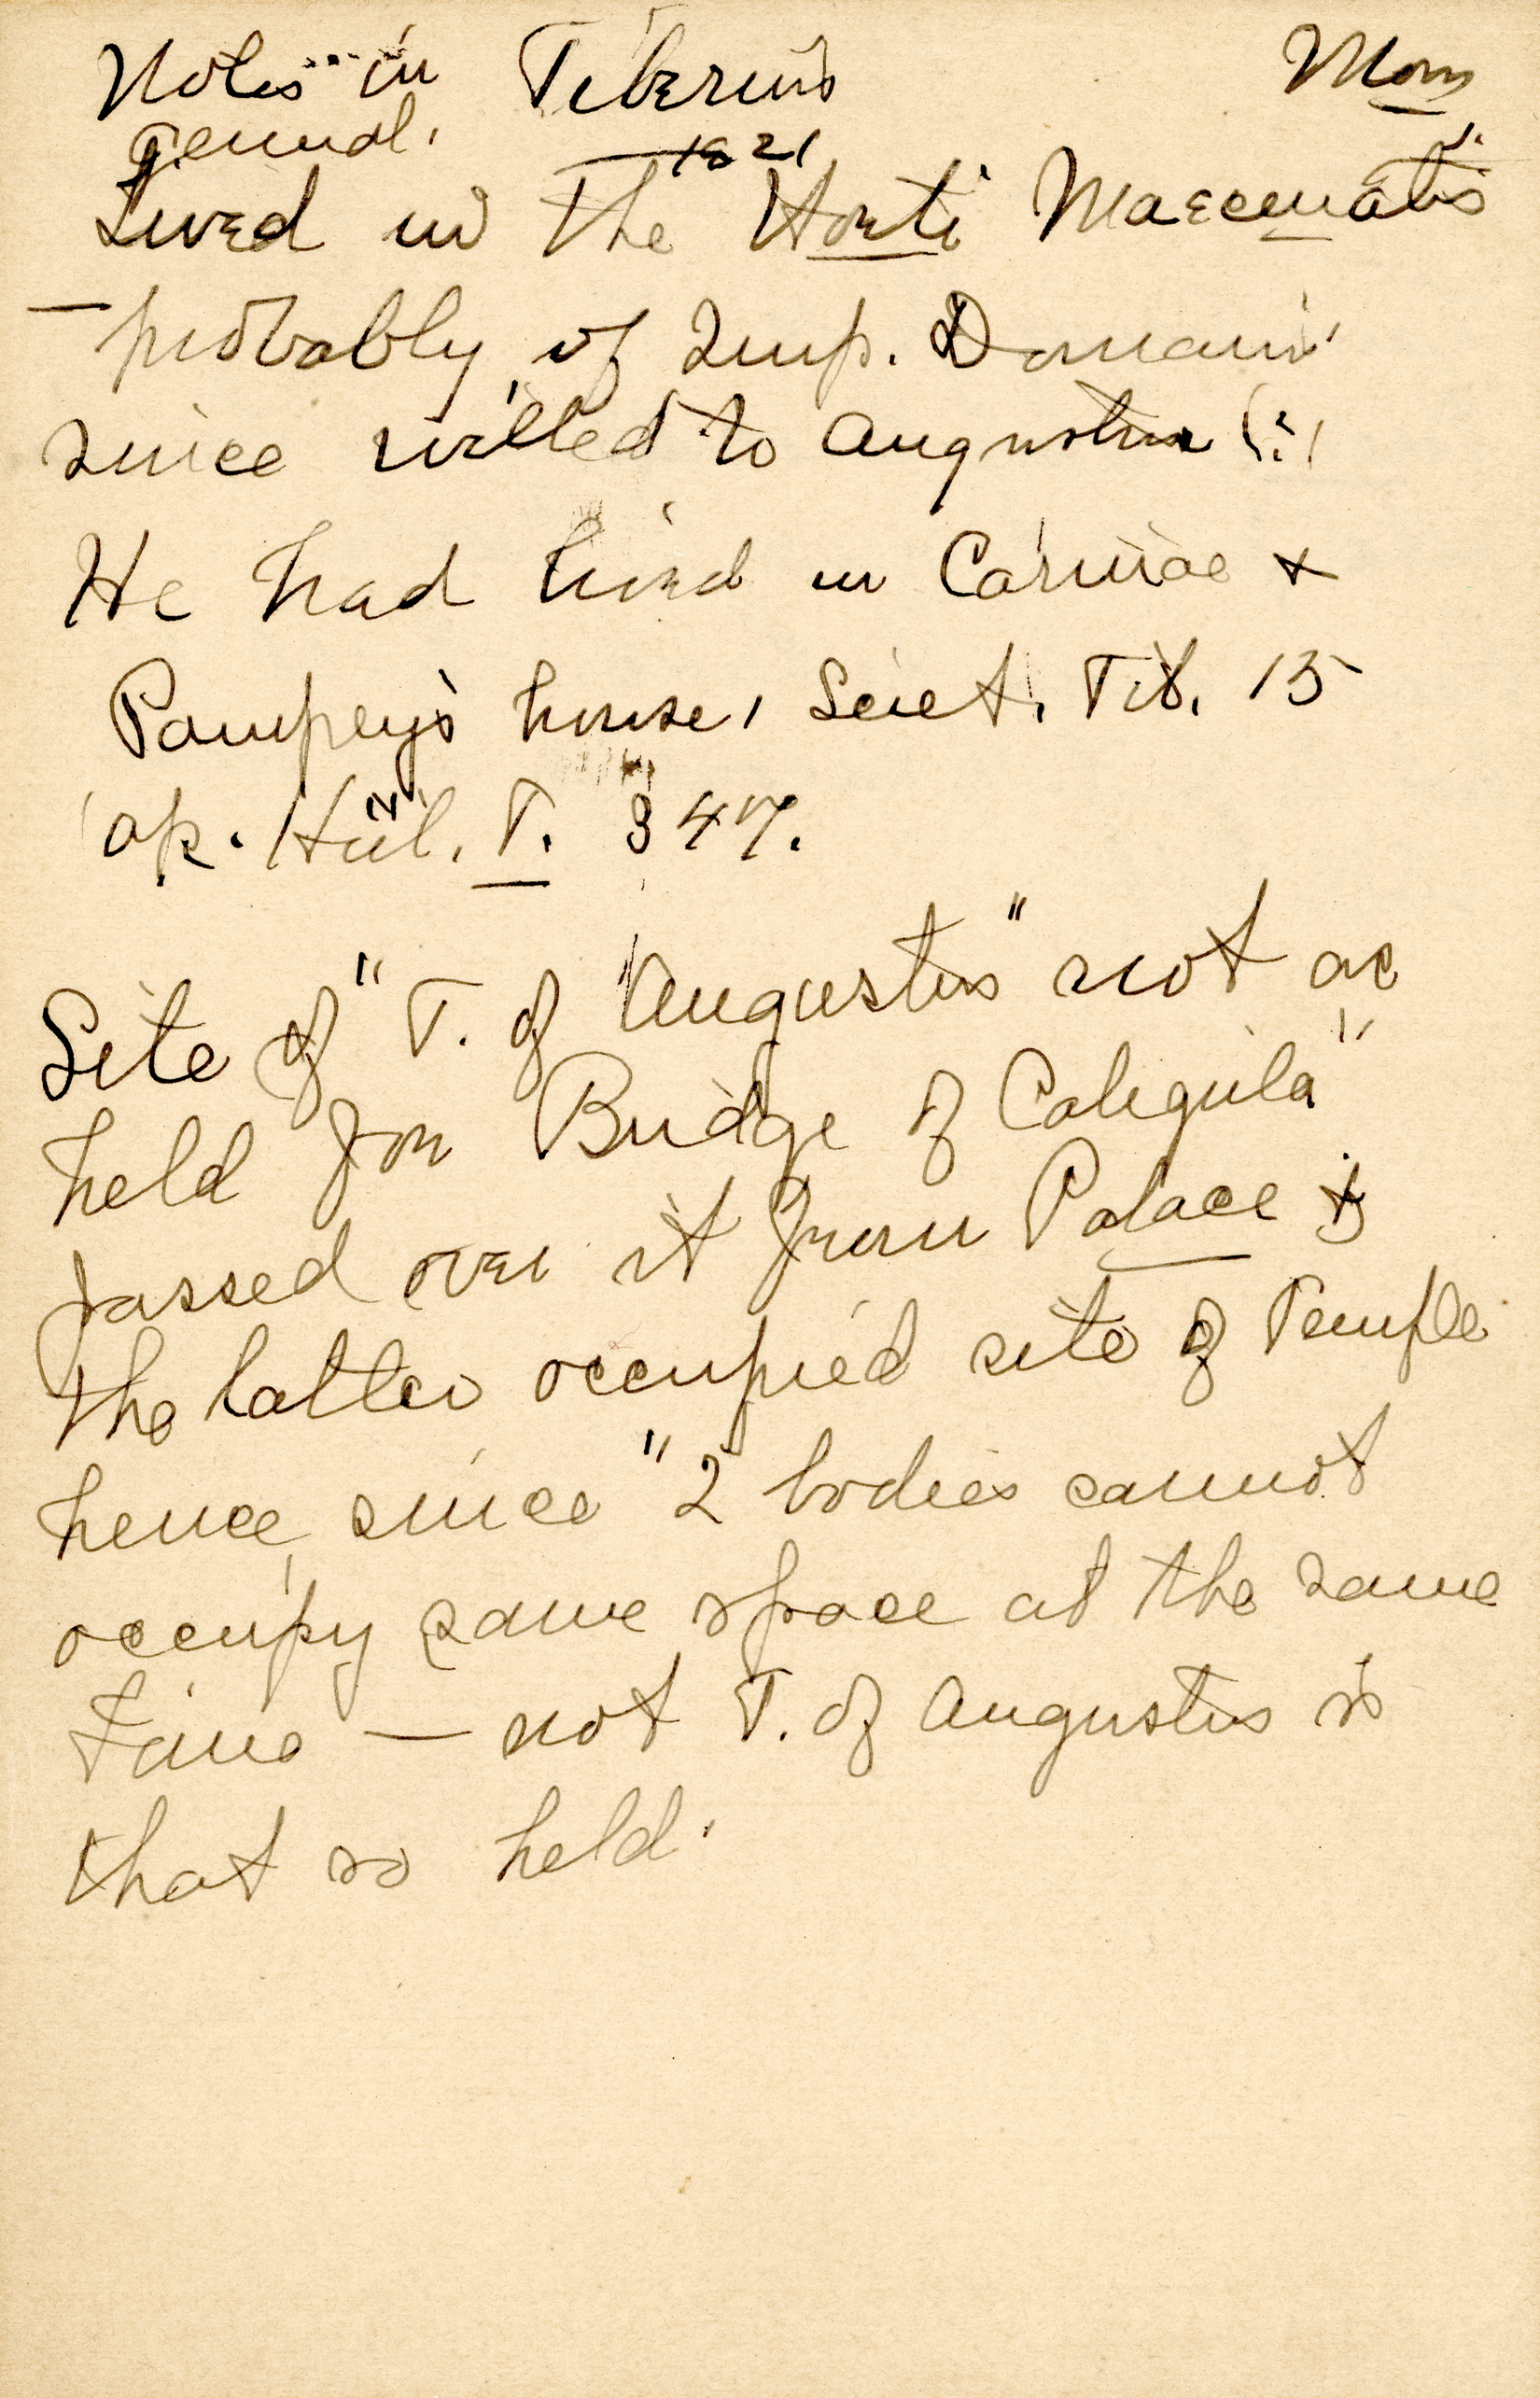 Notes in Tiberius Mom
Genual.
1821
Lived in the Horti Maecenatis
— probably of Imp. Domain
since willed to Augustus (?)
He had lived in Carinae +
Pompey's house, Suet. Tib. 15
ap. Hül. T. 347.
Site of "T. of Augustus" not as
held for "Bridge of Caligula"
passed over it from Palace &
the latter occupied site of Temple
hence, since "2 bodies cannot
occupy same space at the same
time — not T. of Augustus is
that so held.